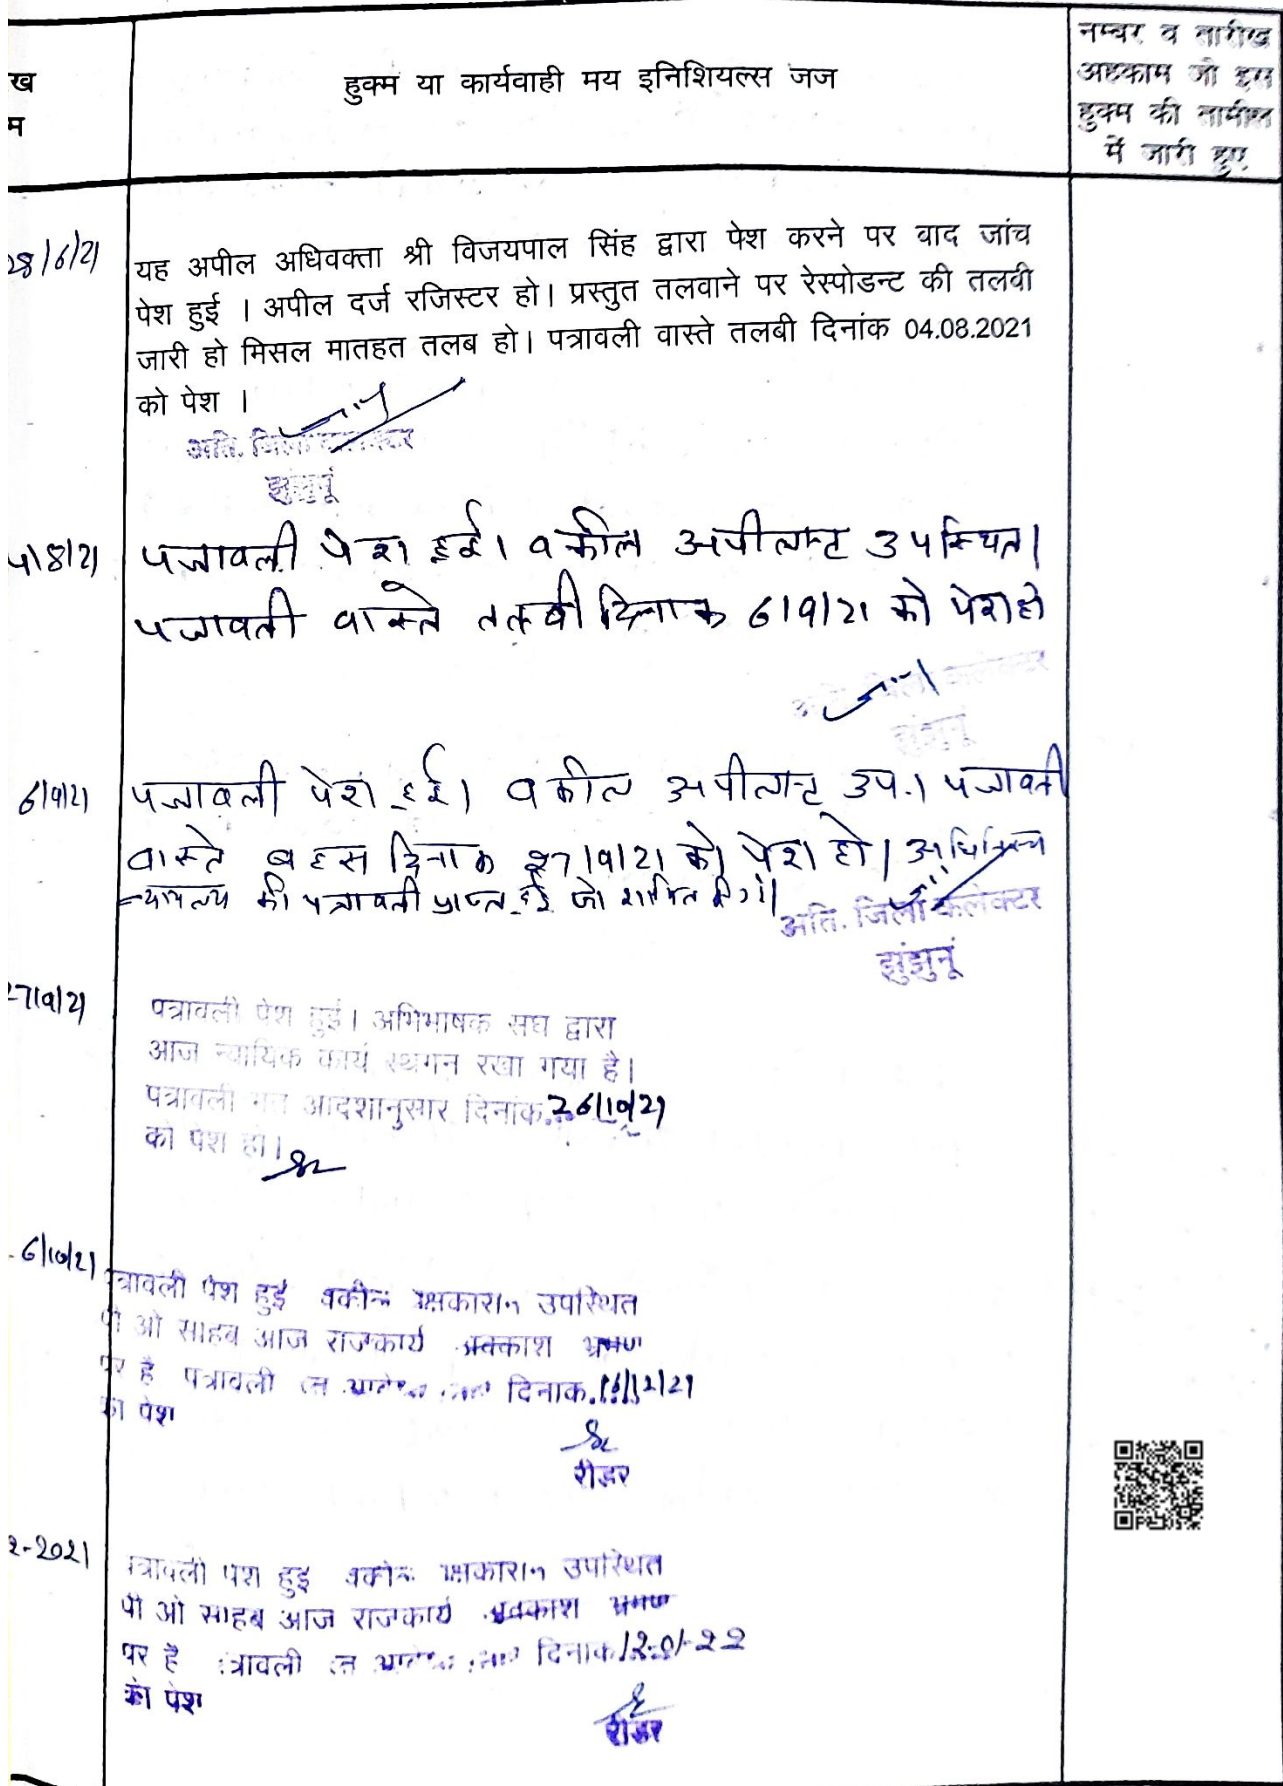 ख
म
हुक्म या कार्यवाही मय इनिशियल्स जज
नम्बर व तारीख
अहकाम जो इस
हुक्म की तामील
में जारी हुए
28/6/21
यह अपील अधिवक्ता श्री विजयपाल सिंह द्वारा पेश करने पर बाद जांच
पेश हुई । अपील दर्ज रजिस्टर हो। प्रस्तुत तलवाने पर रेस्पोडन्ट की तलबी
जारी हो मिसल मातहत तलब हो। पत्रावली वास्ते तलबी दिनांक 04.08.2021
को पेश ।
अति. जिला कलेक्टर
झुंझुनूं
8/21
पत्रावली पेश हुई। वकील अपीलान्ट उपस्थित।
पत्रावली वास्ते तलबी दिनांक 6/9/21 को पेश हो
जिला कलेक्टर
झुंझुनूं
6/9/21
पत्रावली पेश हुई। वकील अपीलान्ट उप.। पत्रावली
वास्ते बहस दिनांक 27/9/21 को पेश हो। अधिनस्थ
न्यायलय की पत्रावली प्राप्त हुई जो शामिल
अति. जिला कलेक्टर
झुंझुनूं
27/9/21
पत्रावली पेश हुई। अभिभाषक संघ द्वारा
आज न्यायिक कार्य स्थगन रखा गया है।
पत्रावली आदशानुसार दिनांक 26/10/21
को पेश हो।
6/10/21
त्रावली पेश हुई वकील उपस्थित
पी ओ साहब आज राजकार्य अवकाश भ्रमण
पर है पत्रावली दिनाक
का पेश
रीडर
2-2021
त्रावली पेश हुई उपस्थित
पी ओ साहब आज राजकार्य अवकाश भ्रमण
पर है त्रावली दिनाक 12-01-22
को पेश
रीडर